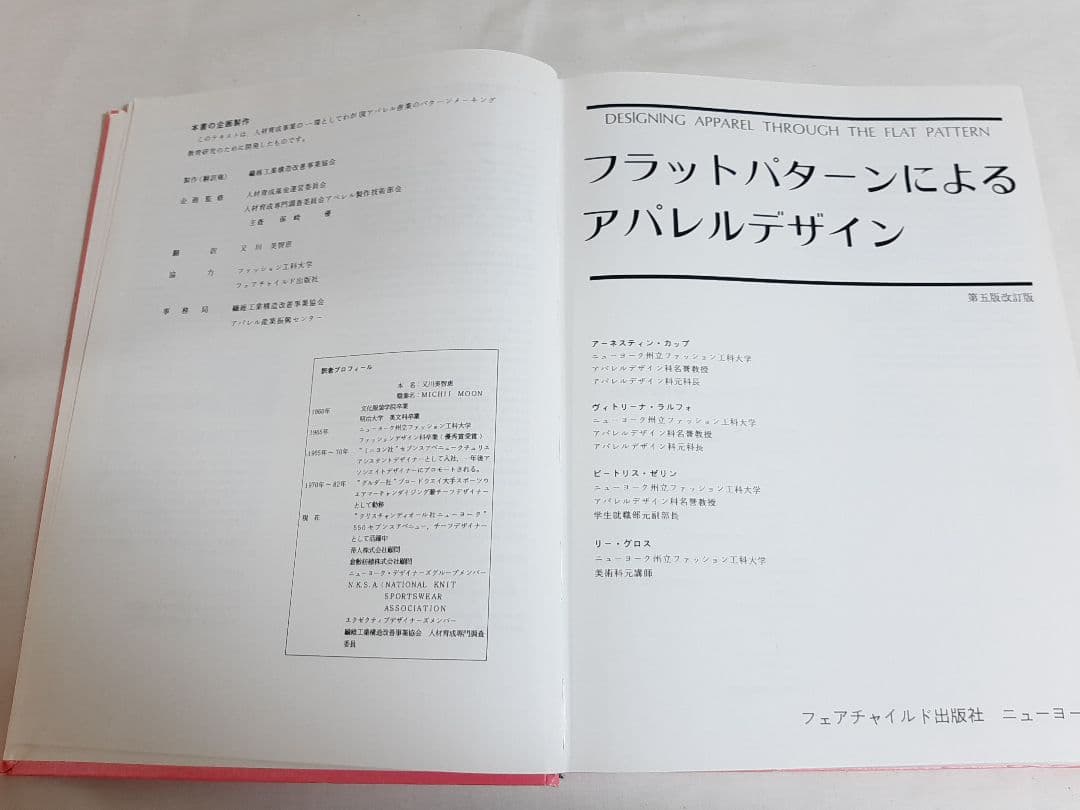 本書の企画製作
このテキストは、人材育成事業の一環としてわが国アパレル産業のパターンメーキング
教育研究のために開発したものです。
製作(翻訳権) 繊維工業構造改善事業協会
企画監修 人材育成基金運営委員会
人材育成専門調査委員会アパレル製作技術部会
主査 優
翻訳 又川 美智恵
協力 ファッション工科大学
フェアチャイルド出版社
事務局 繊維工業構造改善事業協会
アパレル産業振興センター
訳者プロフィール
本 名:又川美智恵
職業名:MICHII MOON
1960年 文化服装学院卒業
明治大学 英文科卒業
1965年 ニューヨーク州立ファッション工科大学
ファッションデザイン科卒業(優秀賞受賞)
1965年~70年 “ミニヨン社”セブンスアベニュークチュリエ
アシスタントデザイナーとして入社、一年後ア
ソシエイトデザイナーにプロモートされる。
1970年~82年 “グルダー社”ブロードウエイ大手スポーツウ
エアマーキャンダイジング兼チーフデザイナー
として勤務
現在 “クリスチャンディオール社ニューヨーク”
550セブンスアベニュー,チーフデザイナー
として活躍中
帝人株式会社顧問
倉敷紡績株式会社顧問
ニューヨーク・デザイナーズグループメンバー
N.K.S.A(NATIONAL KNIT
SPORTSWEAR
ASSOCIATION
エクゼクティブデザイナーズメンバー
繊維工業構造改善事業協会 人材育成専門調査
委員
DESIGNING APPAREL THROUGH THE FLAT PATTERN
フラットパターンによる
アパレルデザイン
第五版改訂版
アーネスティン・カップ
ニューヨーク州立ファッション工科大学
アパレルデザイン科名誉教授
アパレルデザイン科元科長
ヴィトリーナ・ラルフォ
ニューヨーク州立ファッション工科大学
アパレルデザイン科名誉教授
アパレルデザイン科元科長
ビートリス・ゼリン
ニューヨーク州立ファッション工科大学
アパレルデザイン科名誉教授
学生就職部元副部長
リー・グロス
ニューヨーク州立ファッション工科大学
美術科元講師
フェアチャイルド出版社 ニューヨー